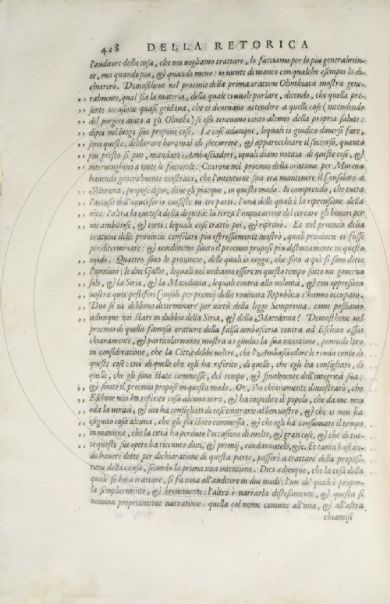 408 DELLA RETORICA
l'auditore della cosa, che noi vogliamo trattare, lo facciamo per lo piu generalmen-
te, ma quando piu, & quando meno: io niente di manco con qualche esempio lo di-
chiarerò. Demosthene nel proemio della prima oratione Olinthiaca mostra gene-
ralmente, qual sia la materia, della quale ei vuole parlare, dicendo, che quella pre-
sente occasione quasi gridana, che ei devevano attendere a quelle cose (intendendo
del porgere aiuto a gli Olinthi) se essi tenevano conto alcuno della propria salute:
dipoi nel luogo suo propone cosi. Le cose adunque, lequali io giudico doversi fare,
sono queste; deliberar horamai di soccorrere, & apparecchiare il soccorso, quanto
piu presto si può, mandare Ambasciadori, a quali diano notitia di queste cose, &
intervenghino a tutte le faccende. Cicerone nel proemio della oratione per Murena
havendo generalmente mostrato, che l'intentione sua era mantenere il consolato a
Murena, propose dipoi, dove gli piacque, in questo modo. Io comprendo, che tutta
l'accusa dell'avversario consiste in tre parti: l'una delle quali è la riprensione della
vita: l'altra la contesa della dignità: la terza l'imputatione del cercare gli honori per
via ambitiosa, & torti: lequali cose trattò poi, & risolvè. Et nel proemio della
oratione delle provincie consolari piu espressamente mostrò, quali provincie ei fusse
per determinare: & nondimeno finito il proemio propose piu distintamente in questo
modo. Quattro sono le provincie, delle quali io veggo, che sino a qui si sono dette
l'opinioni; le due Galliе, lequali noi vediamo essere in questo tempo sotto un governo
solo, & la Soria, & la Macedonia, lequali contra alla volontà, & con oppressione
nostra quei pestiferi Consoli per premio della rovinata Republica s'hanno occupato.
Due se ne debbono determinare per virtù della legge Sempronia. come possiamo
adunque noi stare in dubbio della Siria, & della Macedonia? Demosthene nel
proemio di quella famosa oratione della falsa ambasceria contra ad Eschine assai
chiaramente, & particolarmente mostra a i giudici la sua intentione, ponendo loro
in consideratione, che la Città debbe volere, che l'Ambasciadore le renda conto di
queste cose: cioè di quelle che egli ha riferito, di quelle, che egli ha consigliato, di
quelle, che gli sono state commesse, del tempo, & finalmente dell'integrità sua:
& finito il proemio propose in questo modo. Or, s'io chiaramente dimostrarò, che
Eschine non ha referito cosa alcuna vera, & ha impedito il popolo, che da me non
oda la verità, & vi ha consigliato di cose contrarie al ben nostro, & che ei non ha
eseguito cosa alcuna, che gli sia stata commessa, & che egli ha consumato il tempo
in vanità, che la città ha perduto l'occasione di molte, & gran cose, & che di tut-
te queste sue opere ha ricevuto doni, & premij, condannatelo, &c. Et tanto bastan-
do havere detto per dichiaratione di questa parte, passerò a trattare della proposi-
tione della causa, secondo la prima sua intentione. Dico adunque, che la cosa della
quale si ha a trattare, si fa nota all'auditore in due modi: l'un de' quali è propor-
la semplicemente, & brevemente: l'altro è narrarla distesamente, & questa si
nomina propriamente narratione. quella col nome comune all'una, & all'altra
chiamisi